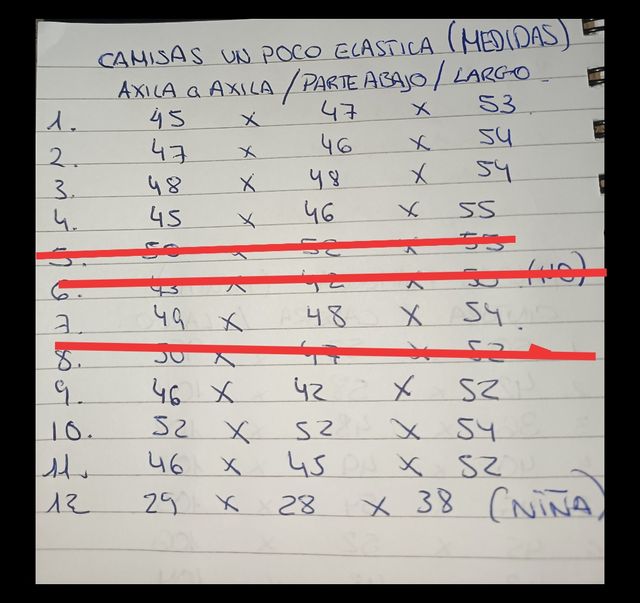 CAMISAS UN POCO ELASTICA (MEDIDAS)
AXILA a AXILA / PARTE ABAJO / LARGO
1. 45 x 47 x 53
2. 47 x 46 x 54
3. 48 x 48 x 54
4. 45 x 46 x 55
5. 50 x 52 x 55
6. 43 x 42 x 50 (NO)
7. 49 x 48 x 54.
8. 50 x 47 x 52
9. 46 x 42 x 52
10. 52 x 52 x 54
11. 46 x 45 x 52
12 29 x 28 x 38 (NIÑA)